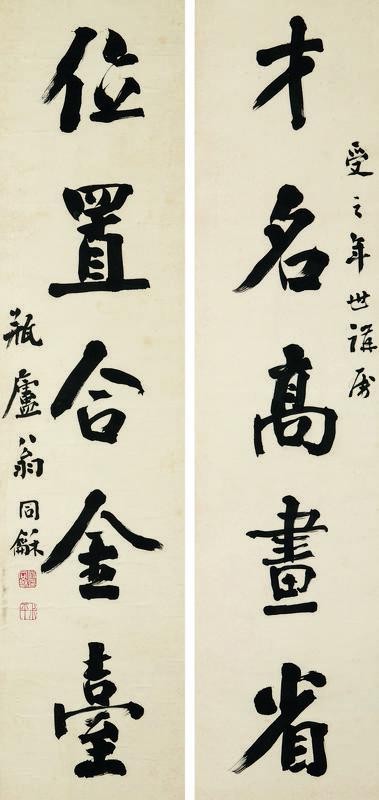 受之年世講属
才名高畫省
位置合金臺
瓶廬翁同龢